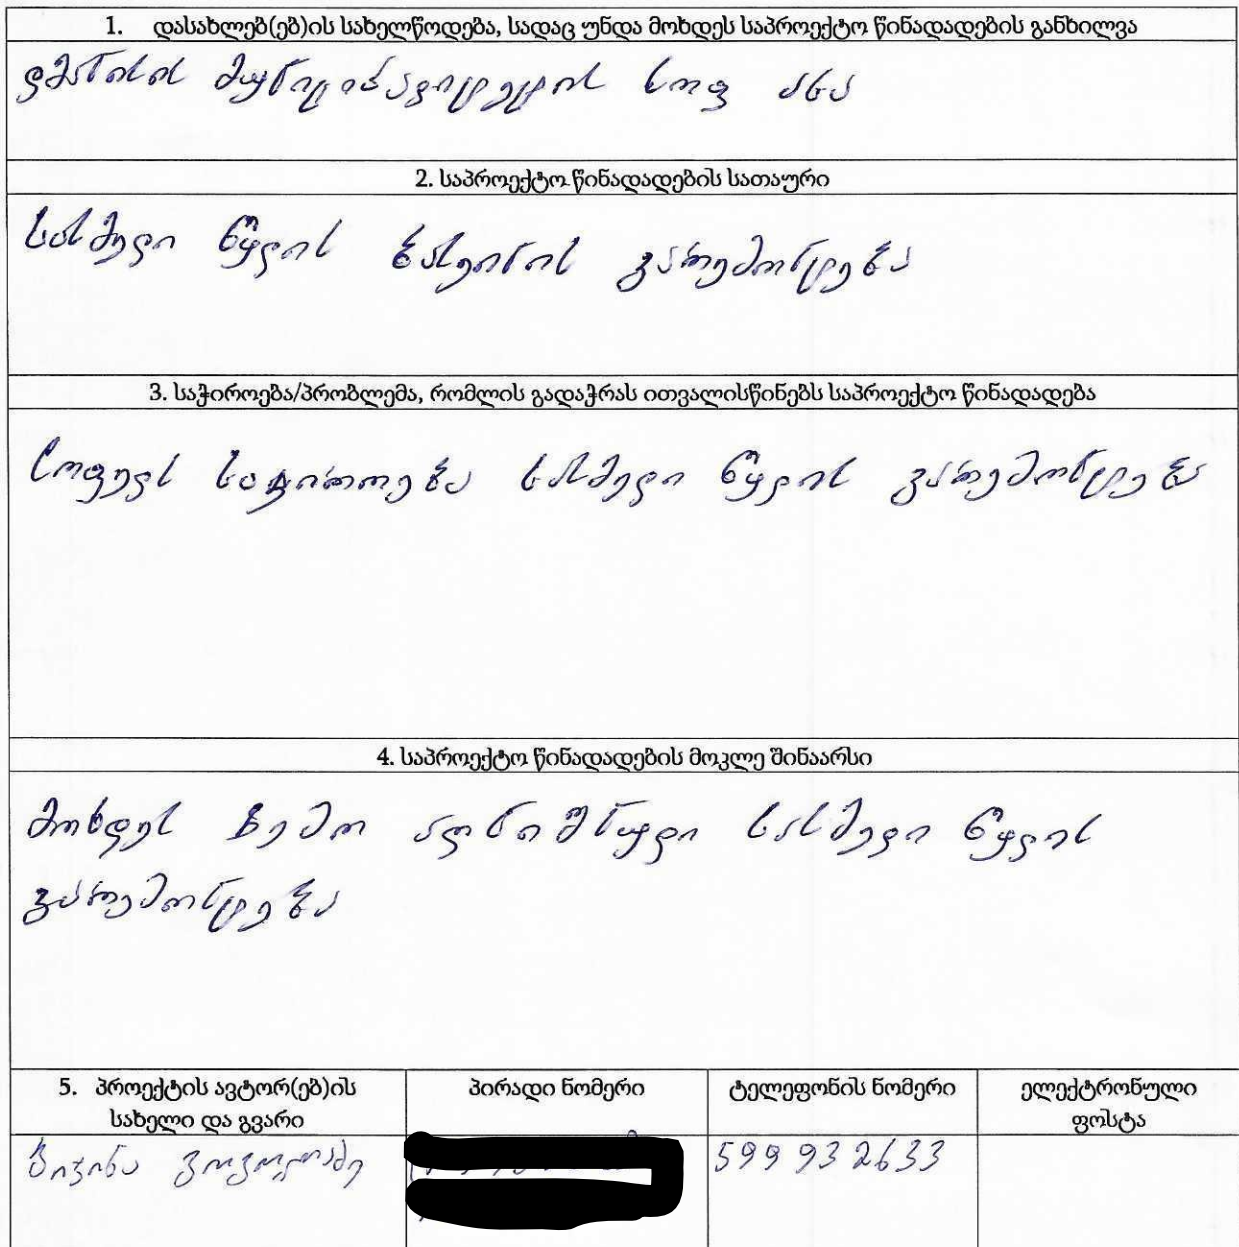 1. დასახლებ(ებ)ის სახელწოდება, სადაც უნდა მოხდეს საპროექტო წინადადების განხილვა
დმანისის მუნიციპალიტეტის სოფ
2. საპროექტო წინადადების სათაური
სასმელი წყლის ბასეინის გარემონტება
3. საჭიროება/პრობლემა, რომლის გადაჭრას ითვალისწინებს საპროექტო წინადადება
სოფელს საჭიროება სასმელი წყლის გარემონტება
4. საპროექტო წინადადების მოკლე შინაარსი
მოხდეს ზემო აღნიშნული სასმელი წყლის
გარემონტება
5. პროექტის ავტორ(ებ)ის
სახელი და გვარი
პირადი ნომერი
ტელეფონის ნომერი
ელექტრონული
ფოსტა
599 93 2633